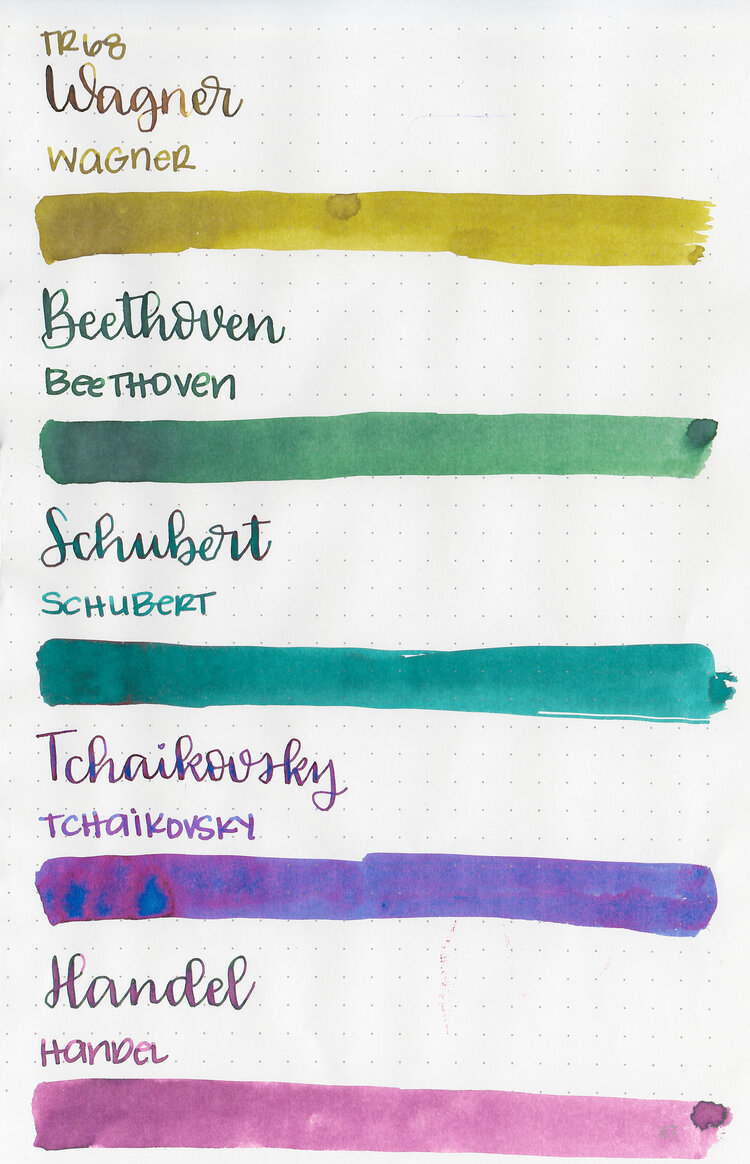 TR68
Wagner
WAGNER
Beethoven
BEETHOVEN
Schubert
SCHUBERT
Tchaikovsky
TCHAIKOVSKY
Handel
HANDEL